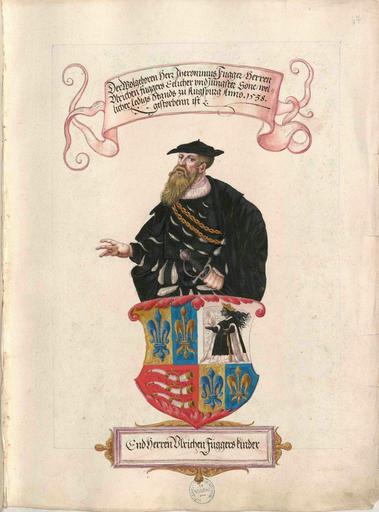 Der Wolgeboren Herr Iheronimus Fugger Herren
Ulrichen Fuggers Eelicher vnd Jüngster Sone wel-
licher ledigs stands zu Augspurg Anno. 1538.
gestorbenn ist
End Herren Vlrichen Fuggers kinder